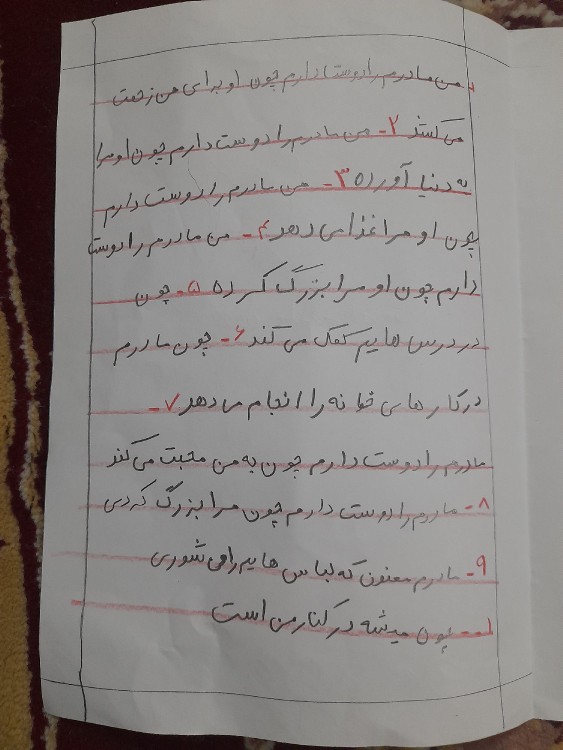 من مادرم را دوست دارم چون او برای من زحمت
می کشد ۲- من مادرم را دوست دارم چون او مرا
به دنیا آورده ۳- من مادرم را دوست دارم
چون او مرا غذا می دهد ۴- من مادرم را دوست
دارم چون او مرا بزرگ کرده ۵- چون
در درس هایم کمک می کند ۶- چون مادرم
در کار های خوا نه را انجام می دهد ۷-
مادرم را دوست دارم چون به من محبت می کند
۸- مادرم را دوست دارم چون مرا بزرگ که دی
۹- مادرم معنون که لباس هایم را می شوری
۱۰- چون میشه در کنار من است